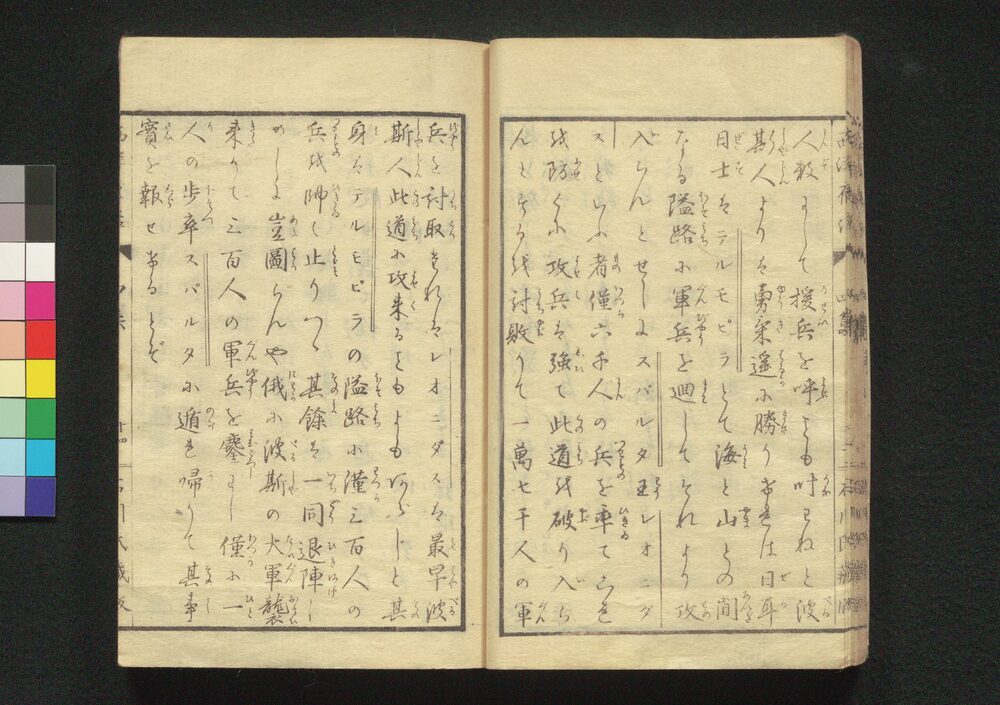 人数にして援兵を呼ともせねと波
斯人よりは勇気遥に勝りければ日耳
日士はテルモピラとて海と山との間
なる隘路に軍兵を廻してそれより攻
入らんとせしにスパルタ王レオニダ
スといふ者僅六千人の兵を率て之
を防ぐに攻兵は強て此道を破り入ら
んとするを討敗りて一萬七千人の軍
兵を討取けれはレオニダスは最早波
斯人此道に攻来るともよもあらじと其
身はテルヒピラの隘路に僅三百人の
兵を帥て止りつゝ其餘は一同退陣し
めしに豈圖らんや俄に波斯の大軍襲
来りて三百人の軍兵を鏖にし僅に一
人の歩卒スパルタに遁れ帰りて其事
實を報せけるとぞ